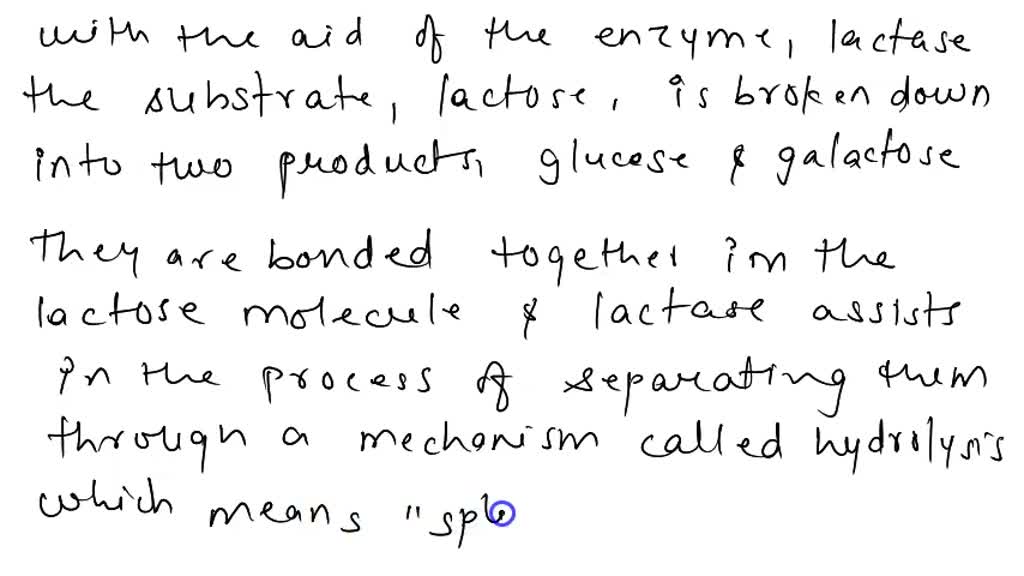 with the aid of the enzyme, lactase
the substrate, lactose, is broken down
into two products, glucose & galactose
They are bonded together in the
lactose molecule & lactase assists
in the process of separating them
through a mechanism called hydrolysis
which means "spl